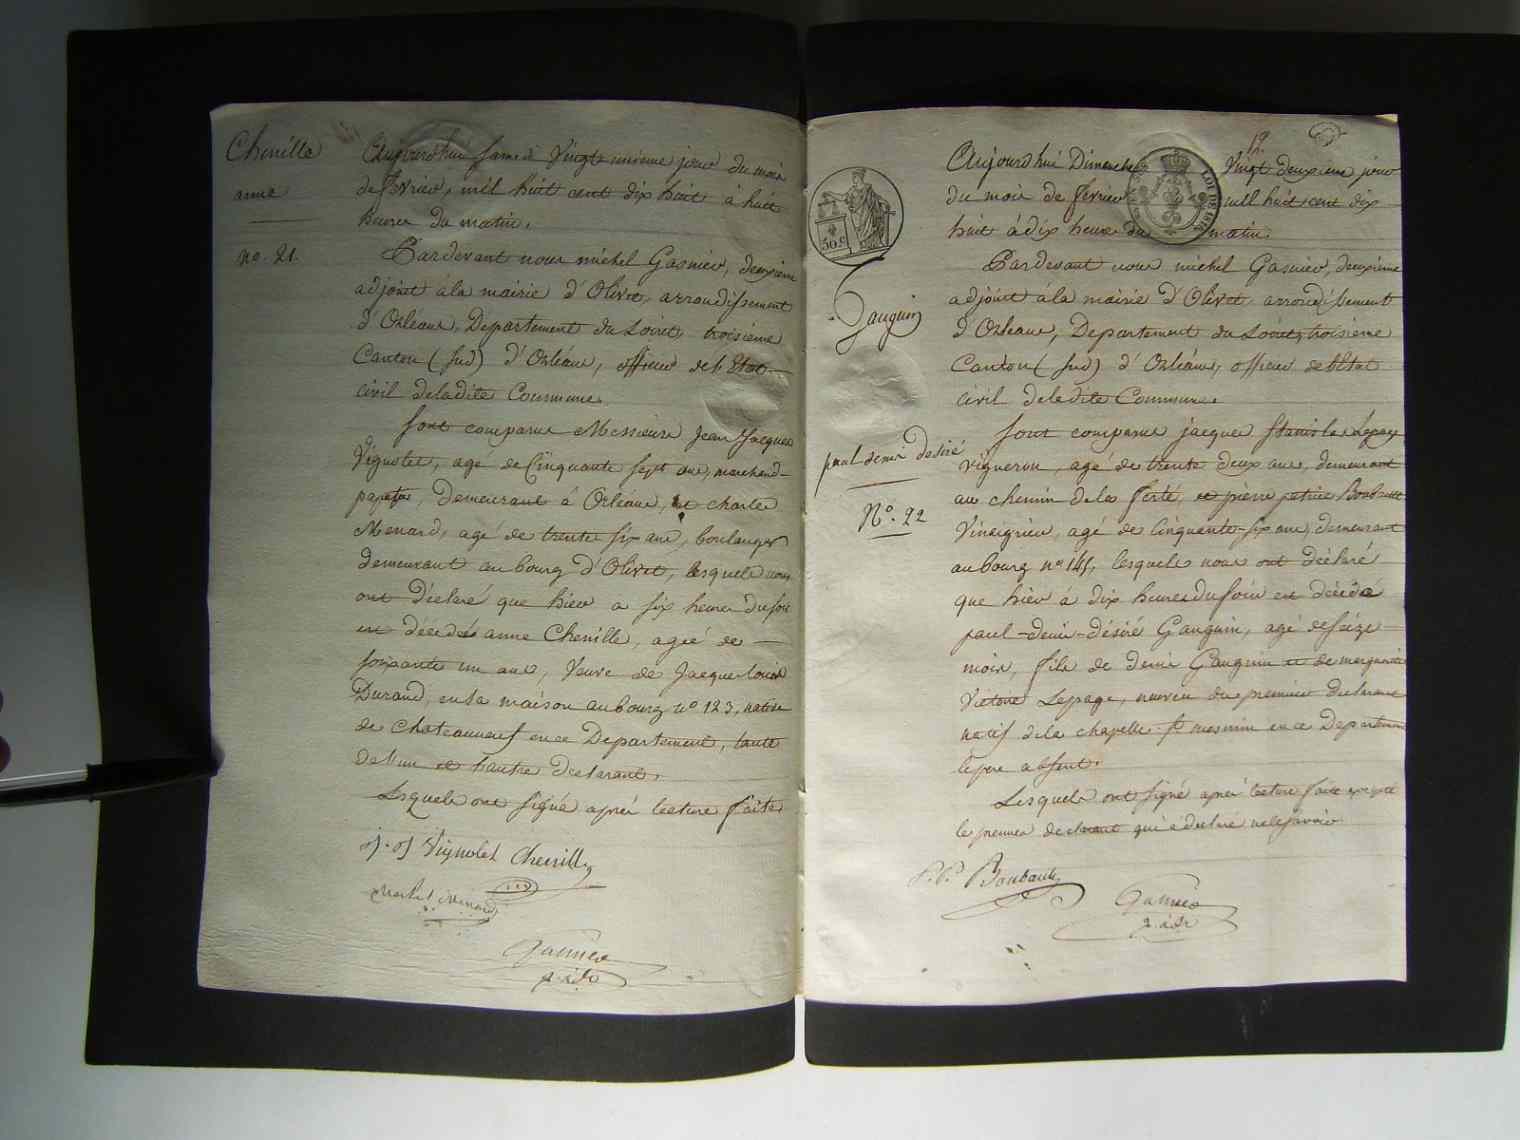 Chenille
anne
no. 21.
Aujourdhui samedi vingt unieme jour du mois
de fevrier, mil huit cent dix huit à huit
heures du matin.
Pardevant nous michel Gasnier, deuxieme
adjoint à la mairie d'Olivet, arrondissement
d'Orléans, Departement du Loiret, troisieme
Canton (sud) d'Orléans, officier de l'Etat
civil de ladite Commune.
Sont comparus Messieurs Jean Jacques
Vignolet, agé de Cinquante sept ans, marchand
papetier, Demeurant à Orleans, et charles
Menard, agé de trente six ans, boulanger
demeurant au bourg d'Olivet, lesquels nous
ont déclaré que hier a six heures du soir
est décédée anne Chenille, agée de
soixante un ans, Veuve de Jacques louis
Durand, en sa maison au bourg no 123, native
de Chateauneuf en ce Departement, tante
de l'un et l'autre declarant.
Lesquels ont signé après lecture faite
j. j Vignolet Chenille
Menard
Gasnier
a. d.
19
LOI DE 1816
50 c
Gauguin
paul denis desiré
No. 22
Aujourd'hui Dimanche Vingt deuxieme jour
du mois de fevrier mil huit cent dix
huit à dix heures du matin.
Pardevant nous michel Gasnier, deuxieme
adjoint à la mairie d'Olivet, arrondissement
d'Orleans, Departement du Loiret, troisieme
Canton (sud) d'Orléans, officier de l'Etat
civil de ladite Commune.
Sont comparus jacques Stanislas Lepage
vigneron, agé de trente deux ans, demeurant
au chemin de la ferté, et pierre patrice Boubault
Vinaigrier, agé de Cinquante-six ans, demeurant
au bourg no 145, lesquels nous ont déclaré
que hier à dix heures du soir est décédé
paul-denis-désiré Gauguin, agé de seize
mois, fils de denis Gauguin et de marguerite
Victoire Lepage, neveu du premier declarant
natif de la chapelle St mesmin en ce Departement
le pere absent.
Lesquels ont signé après lecture faite excepté
le premier declarant qui a declaré ne le savoir
P. P. Boubault
Gasnier
a. d.